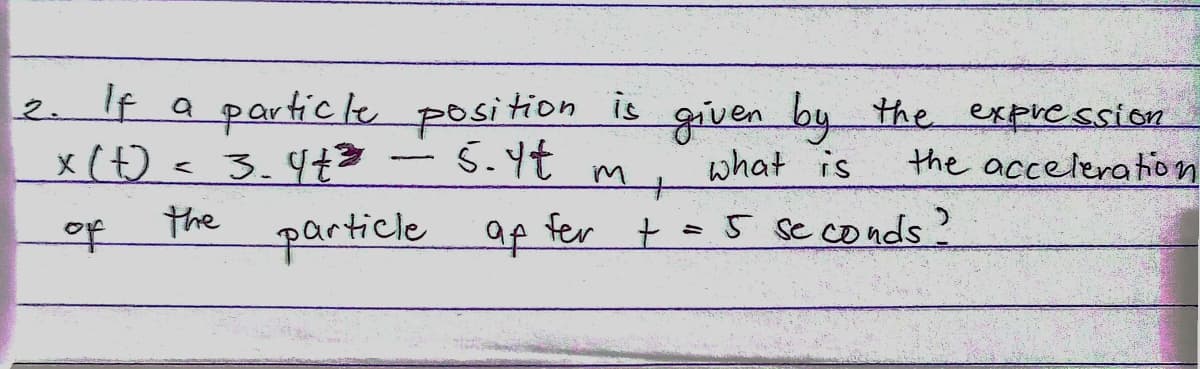 2. If a particle position is given by the expression
x(t) = 3.4t³ - 5.4t m, what is the acceleration
of the particle after t = 5 seconds?